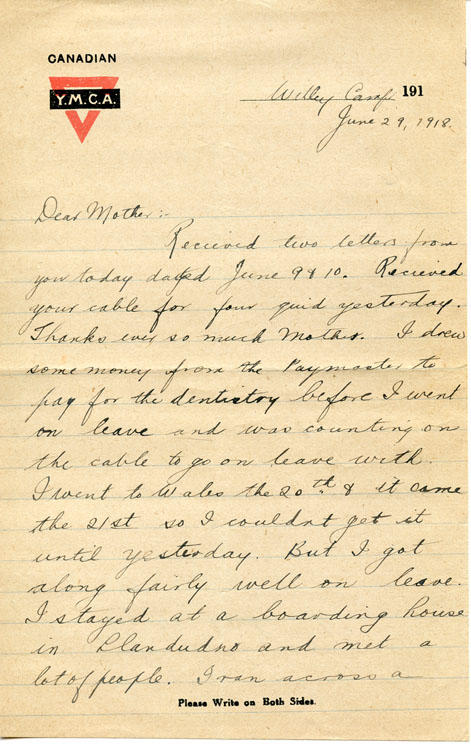 CANADIAN
Y.M.C.A.
Witley Camp 191
June 29, 1918.
Dear Mother:-
Recieved two letters from
you today dated June 9 & 10. Recieved
your cable for four quid yesterday.
Thanks ever so much Mother. I drew
some money from the Paymaster to
pay for the dentistry before I went
on leave and was counting on
the cable to go on leave with.
I went to Wales the 20th & it came
the 21st so I couldnt get it
until yesterday. But I got
along fairly well on leave.
I stayed at a boarding house
in Llandudno and met a
lot of people. I ran across a
Please Write on Both Sides.